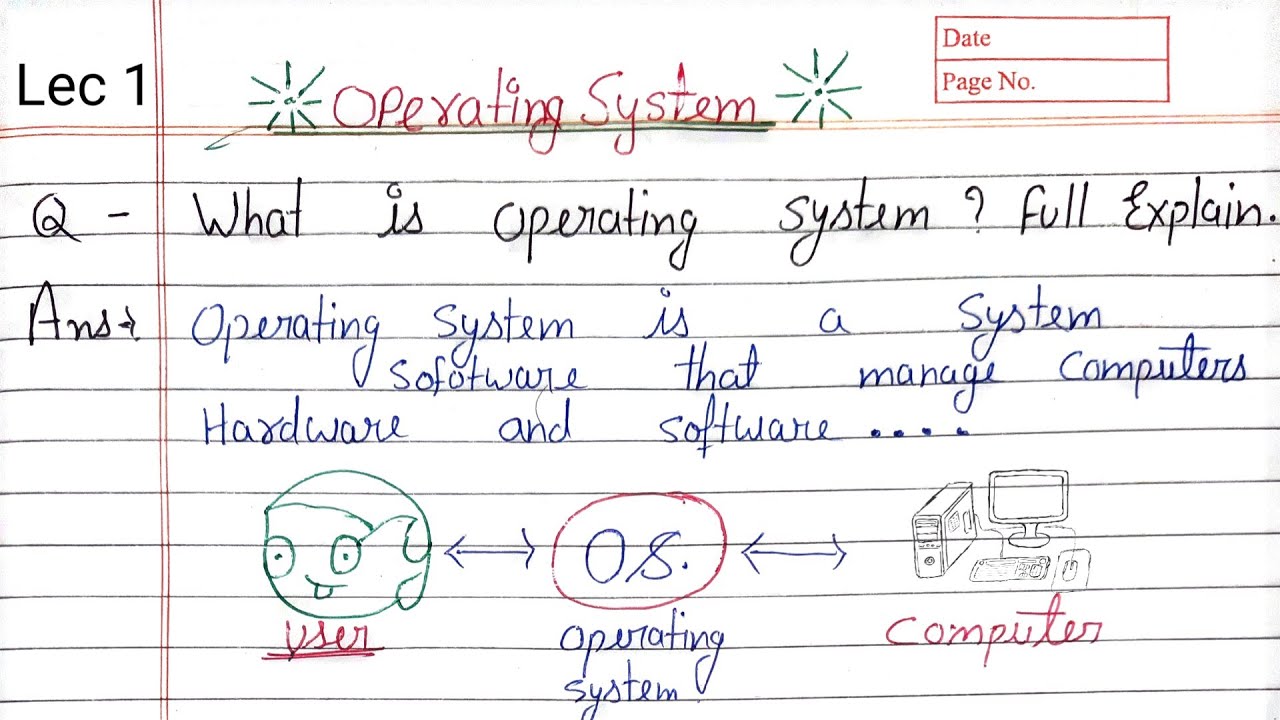 Date
Page No.
Lec 1
Operating System
Q - What is operating system ? Full Explain.
Ans→ Operating System is a System
Sofotware that manage Computers
Hardware and software ....
O.S.
User
operating
system
Computer